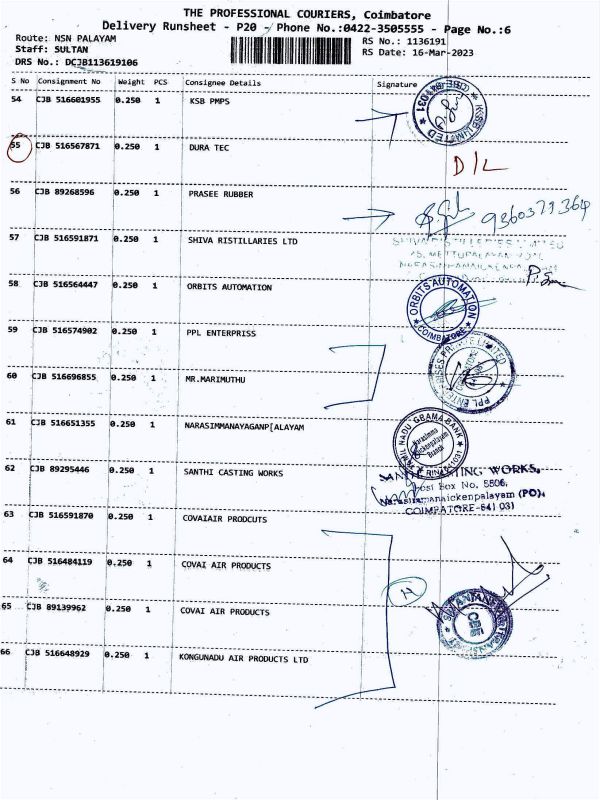 THE PROFESSIONAL COURIERS, Coimbatore
Delivery Runsheet - P20 - Phone No.:0422-3505555 - Page No.:6
Route: NSN PALAYAM RS No.: 1136191
Staff: SULTAN RS Date: 16-Mar-2023
DRS No.: DCJB113619106
S No Consignment No Weight PCS Consignee Details Signature
54 CJB 516601955 0.250 1 KSB PMPS
KSB LIMITED
55 CJB 516567871 0.250 1 DURA TEC
D/L
56 CJB 89268596 0.250 1 PRASEE RUBBER
57 CJB 516591871 0.250 1 SHIVA RISTILLARIES LTD
58 CJB 516564447 0.250 1 ORBITS AUTOMATION
ORBITS AUTOMATION
COIMBATORE
59 CJB 516574902 0.250 1 PPL ENTERPRISS
PPL ENTERPRISES PRIVATE LIMITED
60 CJB 516696855 0.250 1 MR.MARIMUTHU
61 CJB 516651355 0.250 1 NARASIMMANAYAGANP[ALAYAM
TAMIL NADU GRAMA BANK
62 CJB 89295446 0.250 1 SANTHI CASTING WORKS
SANTHI CASTING WORKS,
Post Box No, 5506,
Narasimanaickenpalayam (PO),
COIMBATORE-641 031
63 CJB 516591870 0.250 1 COVAIAIR PRODCUTS
64 CJB 516484119 0.250 1 COVAI AIR PRODUCTS
65 CJB 89139962 0.250 1 COVAI AIR PRODUCTS
CBE
66 CJB 516648929 0.250 1 KONGUNADU AIR PRODUCTS LTD